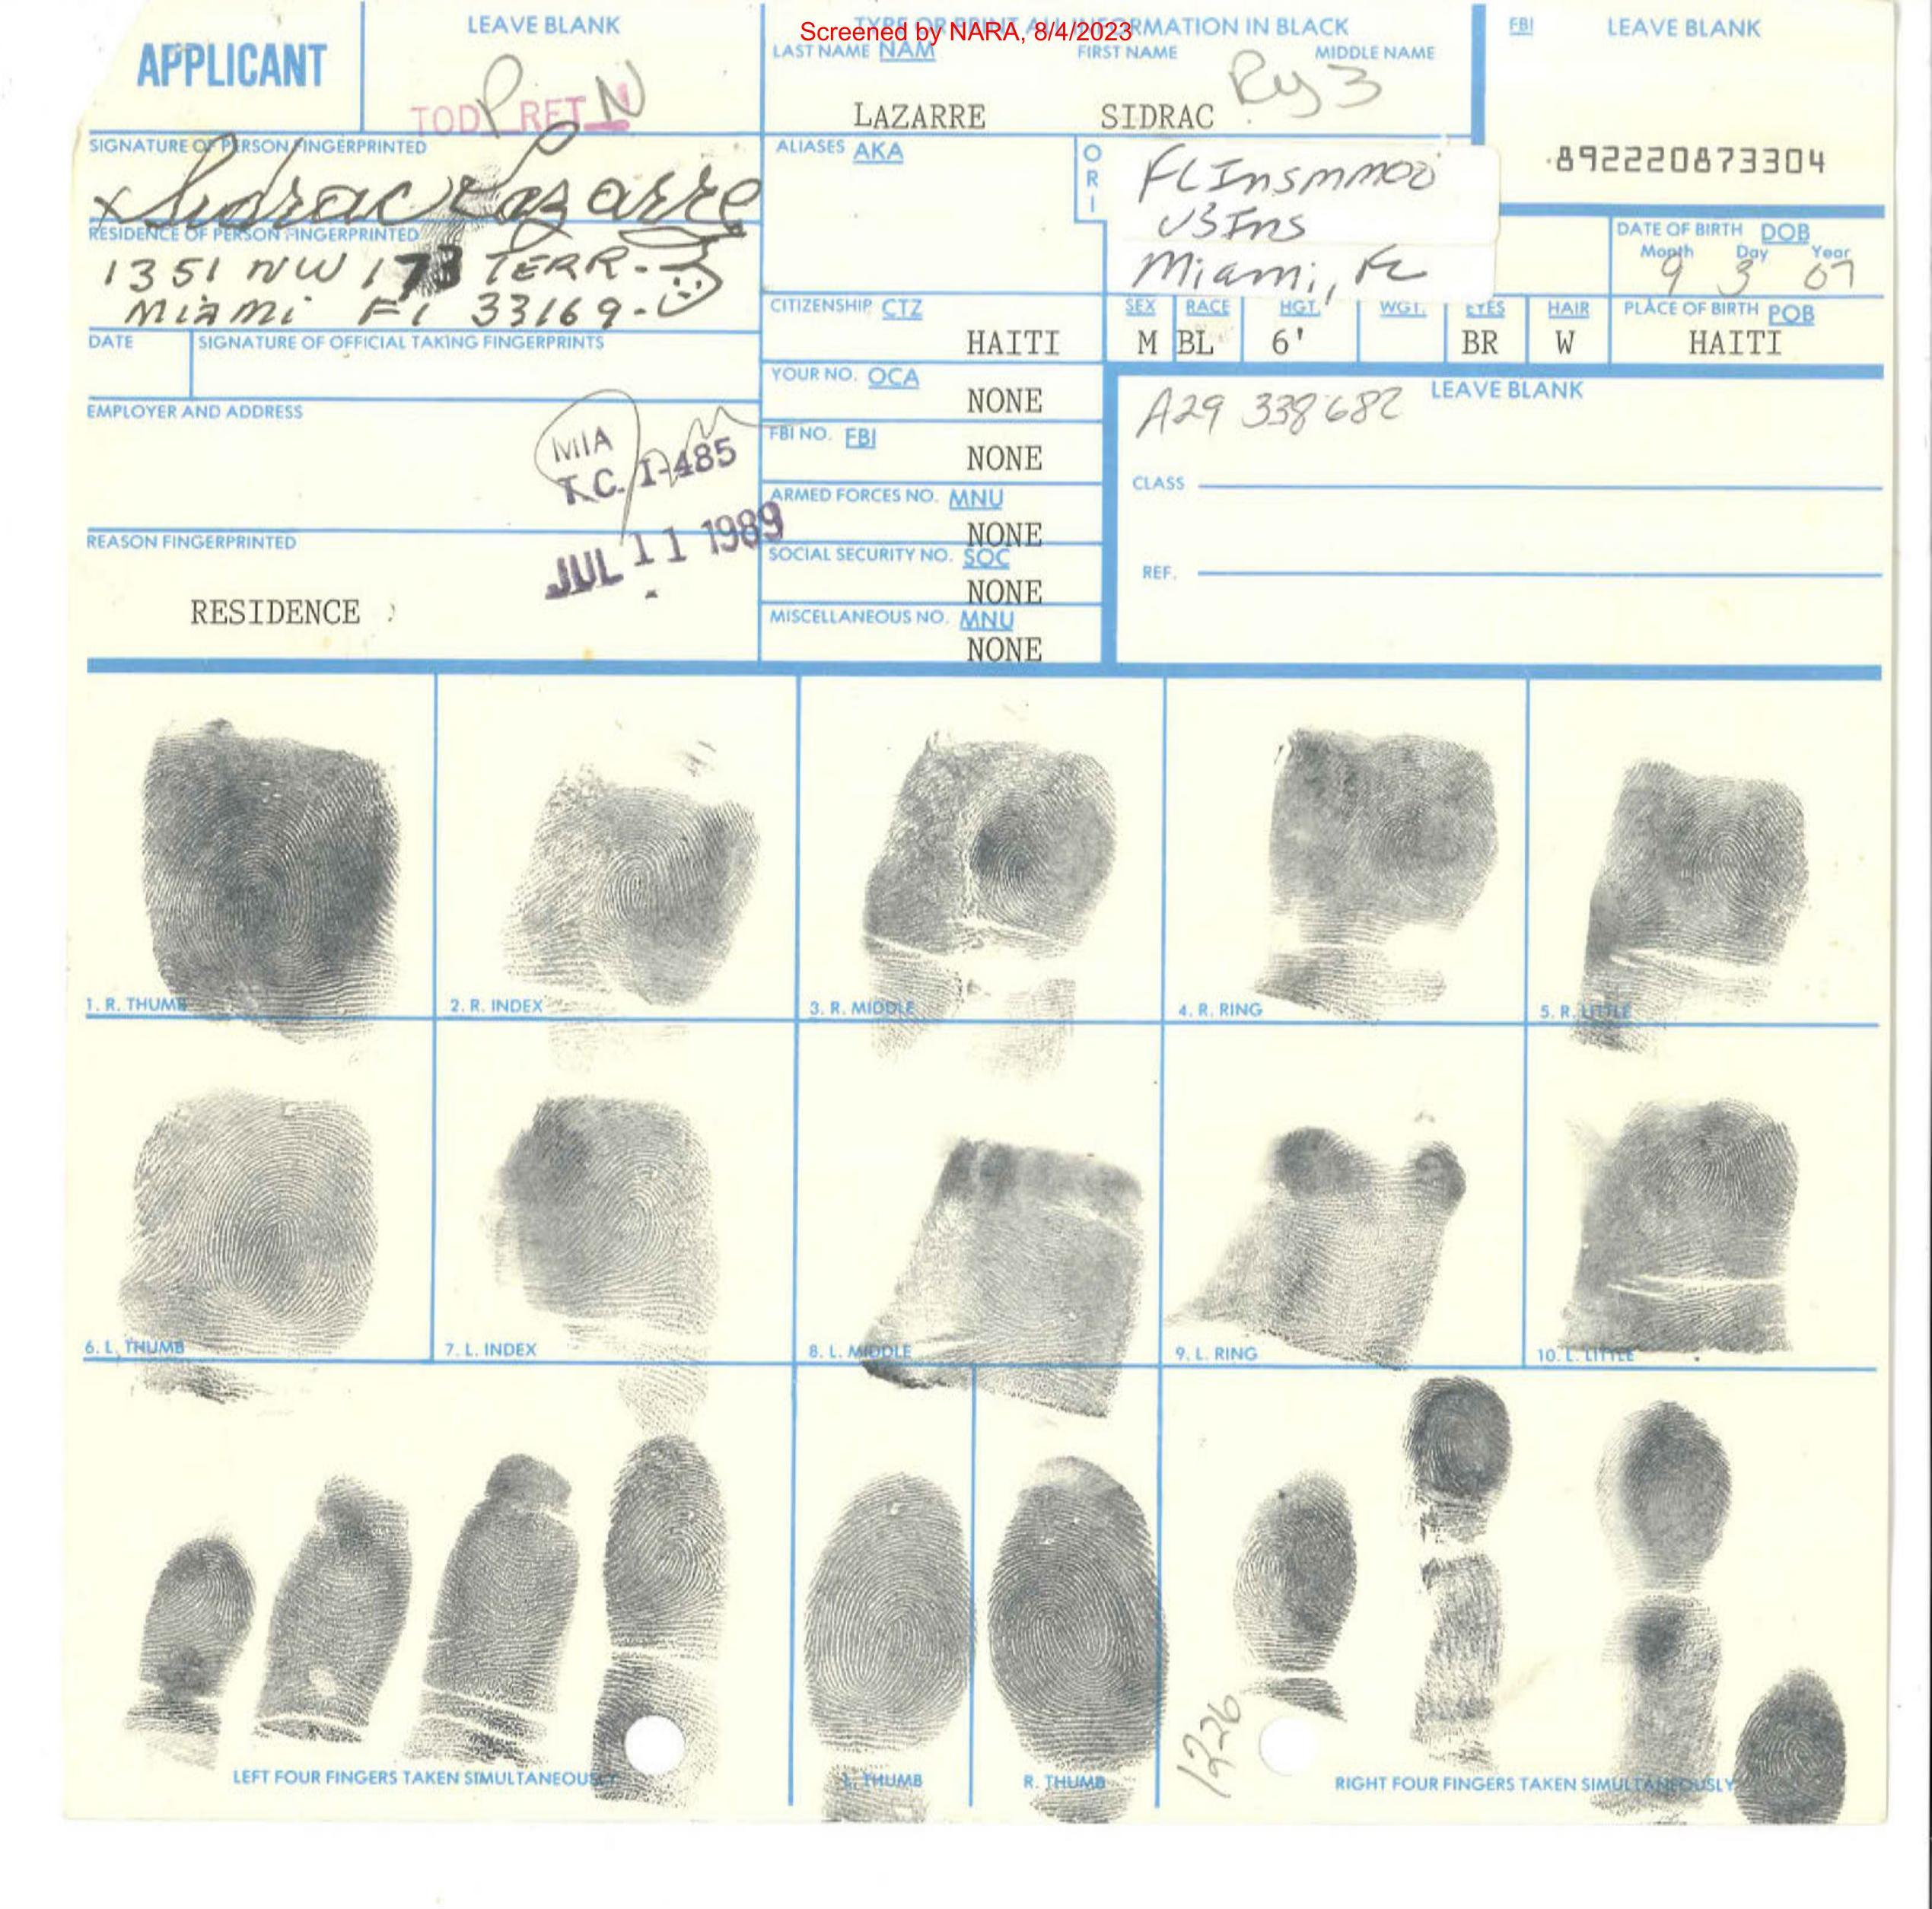 Screened by NARA, 8/4/2023
APPLICANT
LEAVE BLANK
TYPE OR PRINT ALL INFORMATION IN BLACK
LAST NAME NAM FIRST NAME MIDDLE NAME
FBI LEAVE BLANK
LAZARRE SIDRAC
SIGNATURE OF PERSON FINGERPRINTED
Sidrac Lazarre
ALIASES AKA
ORI
FLINSMM00
US Ins
Miami, FL
892220873304
RESIDENCE OF PERSON FINGERPRINTED
1351 NW 173 TERR.
Miami Fl 33169.
DATE OF BIRTH DOB
Month Day Year
9 3 07
CITIZENSHIP CTZ
HAITI
SEX RACE HGT. WGT. EYES HAIR PLACE OF BIRTH POB
M BL 6' BR W HAITI
DATE SIGNATURE OF OFFICIAL TAKING FINGERPRINTS
YOUR NO. OCA
NONE
LEAVE BLANK
A29 338 682
EMPLOYER AND ADDRESS
MIA
T.C. I-485
JUL 11 1989
FBI NO. FBI
NONE
CLASS
ARMED FORCES NO. MNU
NONE
REASON FINGERPRINTED
RESIDENCE
SOCIAL SECURITY NO. SOC
NONE
REF.
MISCELLANEOUS NO. MNU
NONE
1. R. THUMB 2. R. INDEX 3. R. MIDDLE 4. R. RING 5. R. LITTLE
6. L. THUMB 7. L. INDEX 8. L. MIDDLE 9. L. RING 10. L. LITTLE
1226
LEFT FOUR FINGERS TAKEN SIMULTANEOUSLY L. THUMB R. THUMB RIGHT FOUR FINGERS TAKEN SIMULTANEOUSLY